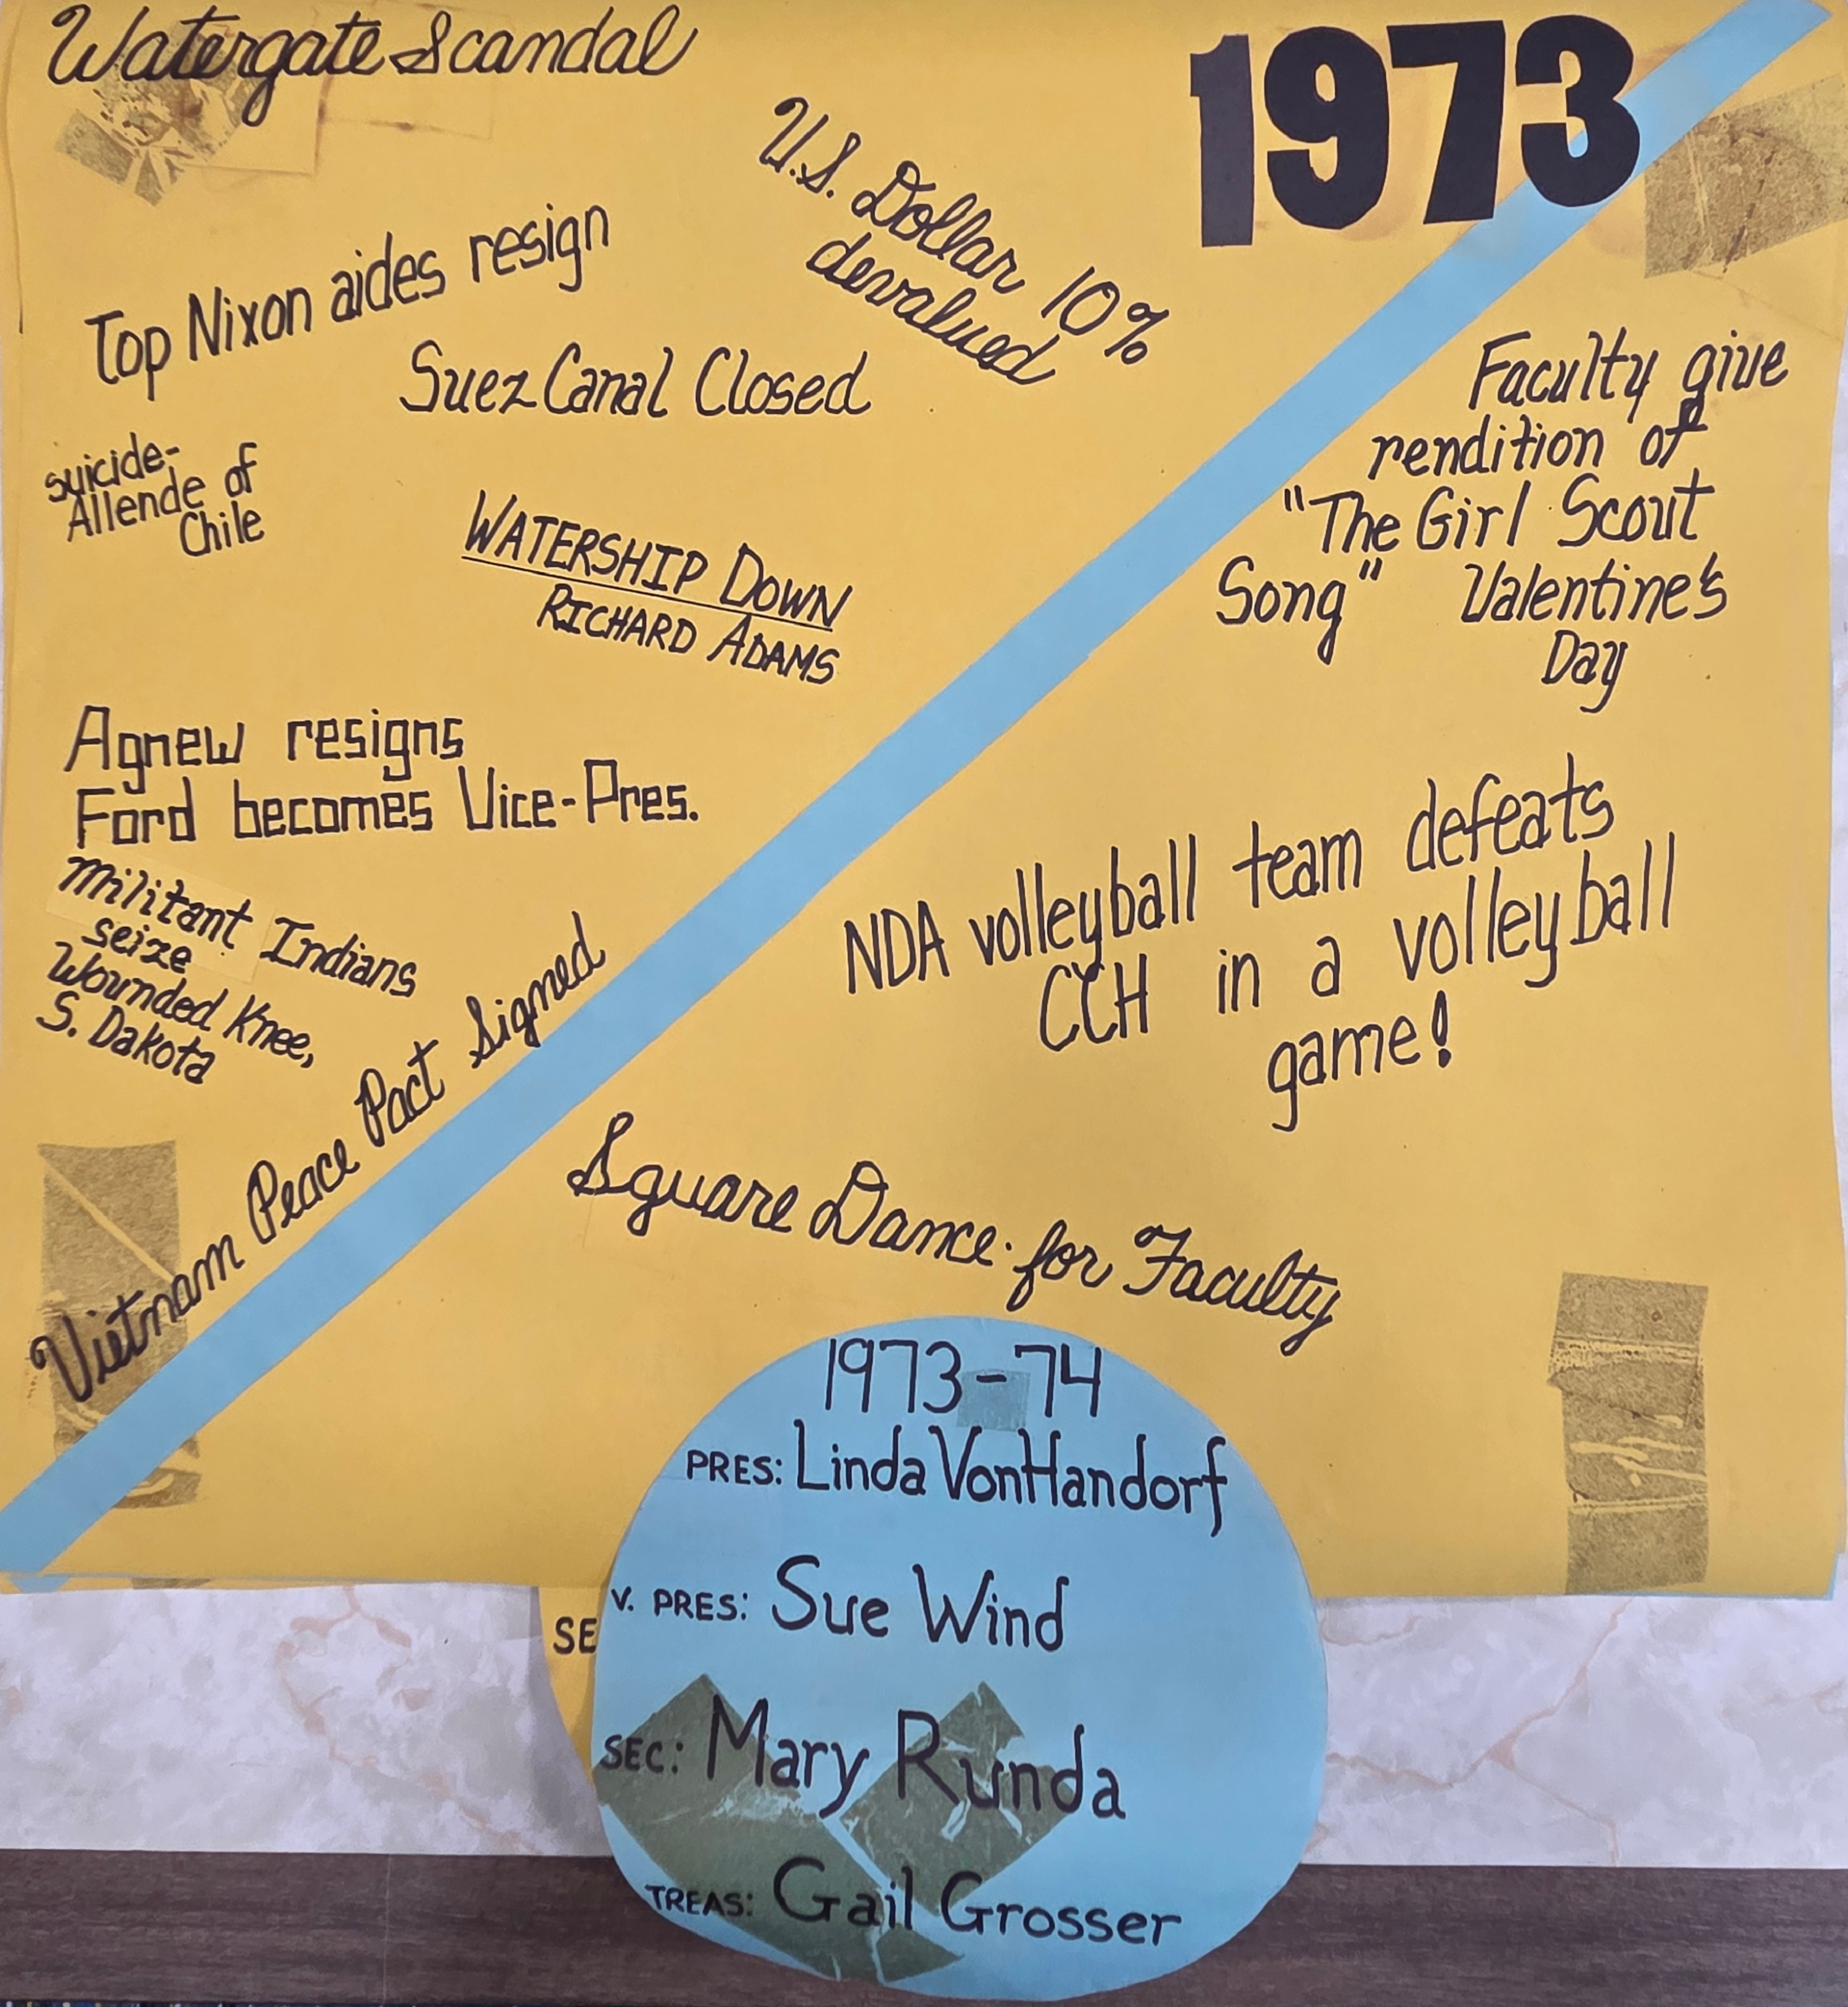 Watergate Scandal
1973
U.S. Dollar 10%
devalued
Top Nixon aides resign
Suez Canal Closed
suicide-
Allende of
Chile
WATERSHIP DOWN
RICHARD ADAMS
Agnew resigns
Ford becomes Vice-Pres.
Militant Indians
seize
Wounded Knee,
S. Dakota
Vietnam Peace Pact Signed
Faculty give
rendition of
"The Girl Scout
Song" Valentine's
Day
NDA volleyball team defeats
CCH in a volleyball
game!
Square Dance for Faculty
1973-74
PRES: Linda VonHandorf
V. PRES: Sue Wind
SE
SEC: Mary Runda
TREAS: Gail Grosser